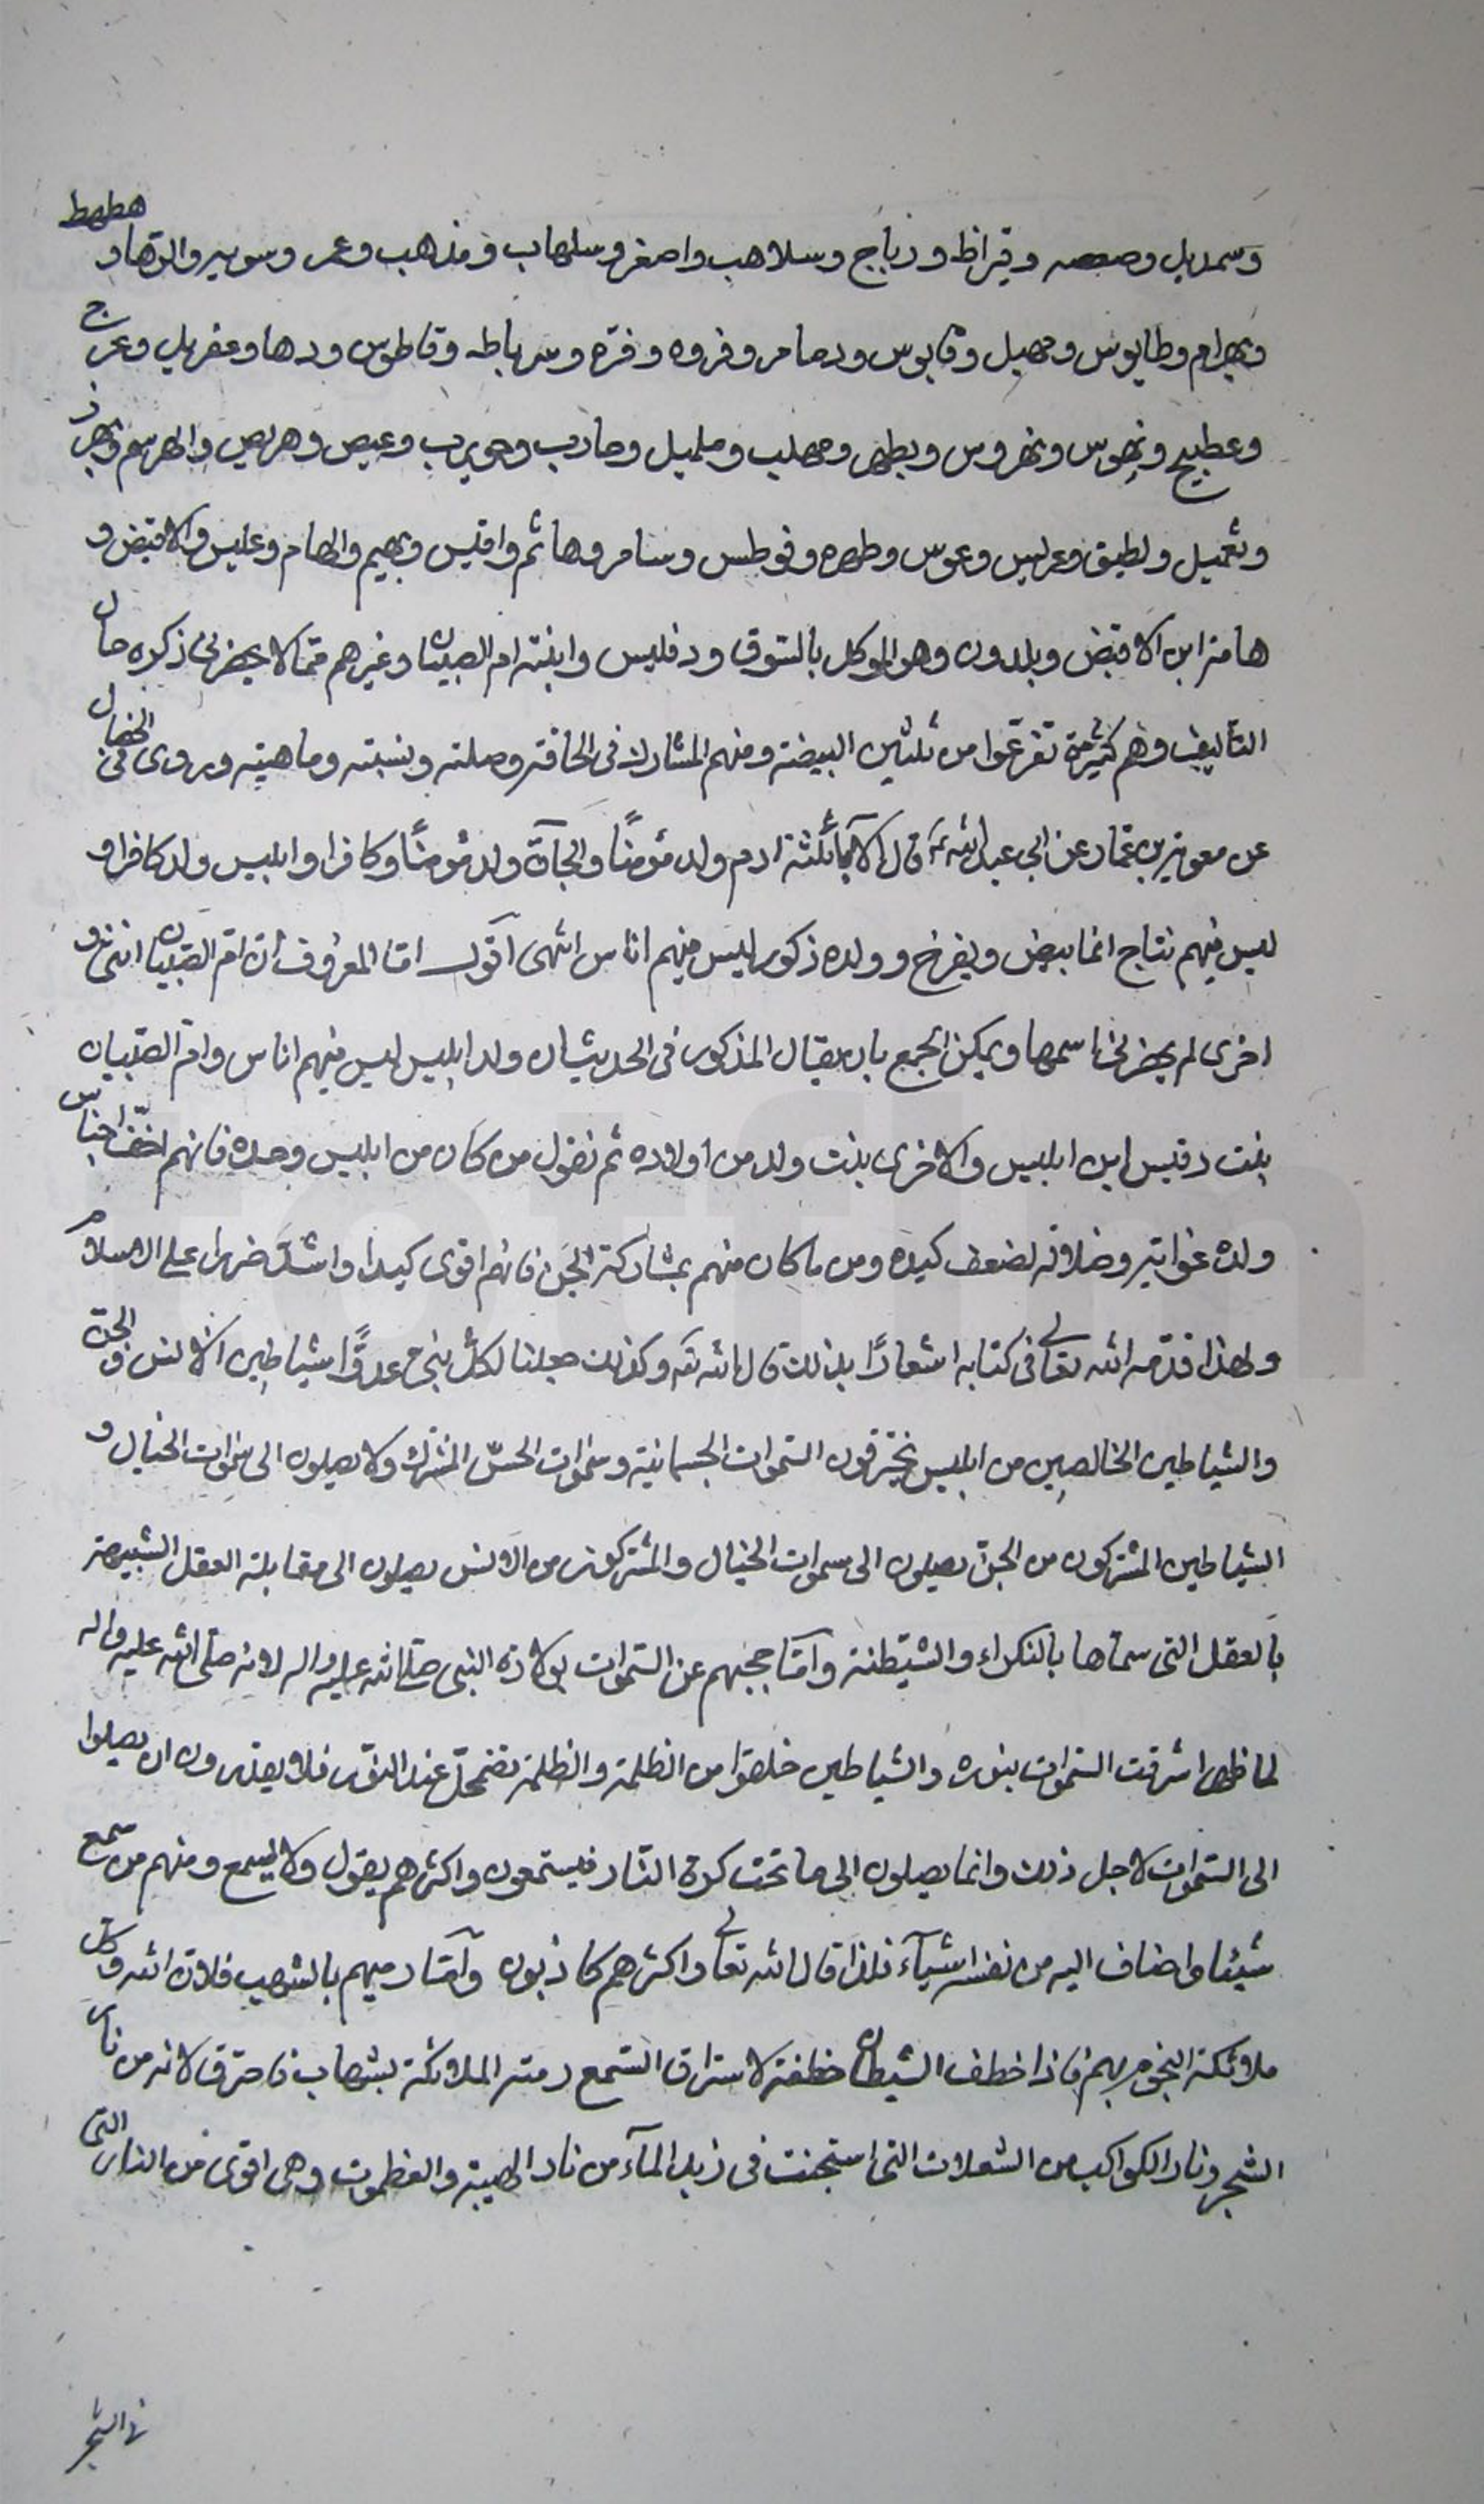 وسمديل وصعصه وقيراط ورباج وسلاهب واصغر وسلهاب ومذهب وعمر وسوسير والرهاو هطهط
وبهرام وطايوس ومهيل وقابوس ودمامر وفروه وفره وسرباطه وقاطوس ودهار وعفريل وعرج
وعطيج ونهوس ونهروس وبطهر ومهلب ومليل وحارب وحويرب وعيص وهريص والهرسم وبهرز
وثميل ولطيق وعرليس وعوس وطهره وفوطس وسامر وهاثم واقيس وبهيم والهام وعليس والاقبض و
هامة ابن الاقبض وبلدون وهو الموكل بالسّوق ودفليس وابنته ام الصبيان وغيرهم ممّا لا يحضرنى ذكره حال
التأليف وهم كثيرة تفرّعوا من ثلثين البيضة ومنهم المشارك فى الحاقه وصلته ونسبته وماهيته وروى فى الخصال
عن معوية بن عمّار عن ابى عبدالله ع قال الآباء ثلثة ادم ولد مؤمنًا والجآنّ ولد مؤمنًا وكافرا وابليس ولد كافرا و
ليس فيهم نتاج انما يبيض ويفرخ وولده ذكور ليس فيهم اناس انتهى اقول امّا المعروف انّ امّ الصّبيان انثى و
اخرى لم يحضرنى اسمها ويمكن الجمع بان يقال المذكور فى الحديث ان ولد ابليس ليس فيهم اناس وامّ الصّبيان
بنت دقيس ابن ابليس والاخرى بنت ولد من اولاده ثم نقول من كان من ابليس وحده فانهم اخفّ اجناس
ولده غواية وضلالة لضعف كيده ومن ما كان منهم بمشاركة الجنّ فانهم اقوى كيدا واشدّ ضررا على الاسلام
ولهذا قدّمه الله تعالى فى كتابه اشعارًا بذلك قال الله تعه وكذلك جعلنا لكلّ نبىّ عدوًّا شياطين الانس والجنّ
والشياطين الخالصين من ابليس يخترقون السّموات الجسمانية وسموات الحسّ المشترك ولا يصلون الى سموات الخيال و
الشياطين المشتركون من الجنّ يصلون الى سموات الخيال والمشتركون من الانس يصلون الى مقابلة العقل الشبيهة
بالعقل التى سماها بالنكراء والشيطنة وامّا حجبهم عن السّموات بولادة النبى صلى الله عليه واله لانه صلى الله عليه واله
لما ظهر اشرقت السّموات بنوره والشياطين خلقوا من الظلمة والظلمة تضمحلّ عند النّور فلا يقدرون ان يصلوا
الى السّموات لاجل ذلك وانما يصلون الى ما تحت كرة النّار فيستمعون واكثرهم يقول ولا يسمع ومنهم من سمع
شيئا واضاف اليه من نفسه اشيآء فلذا قال الله تعالى واكثرهم كاذبون وامّا رميهم بالشهب فلانّ الله وكل
ملائكة النجوم بهم فاذا خطف الشيطان خطفة لاستراق السّمع رمته الملائكة بشهاب فاحترق لانه من نار
الشجر ونار الكواكب من الشعلات التى استجنت فى زبد المآء من نار الهيبة والعظموت وهى اقوى من النار التى
فى الشجر